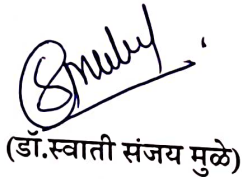 (डॉ.स्वाती संजय मुळे)